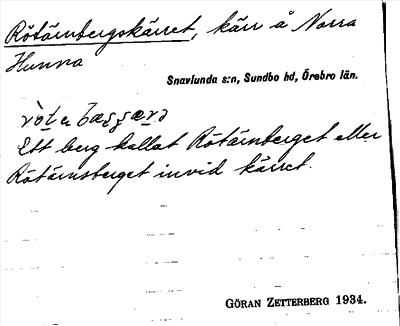 Rötärnbergskärret, kärr å Norra
Hunna
Snavlunda s:n, Sundbo hd, Örebro län.
Ett berg kallat Rötärnberget eller
Rötärnsberget invid kärret.
GÖRAN ZETTERBERG 1934.